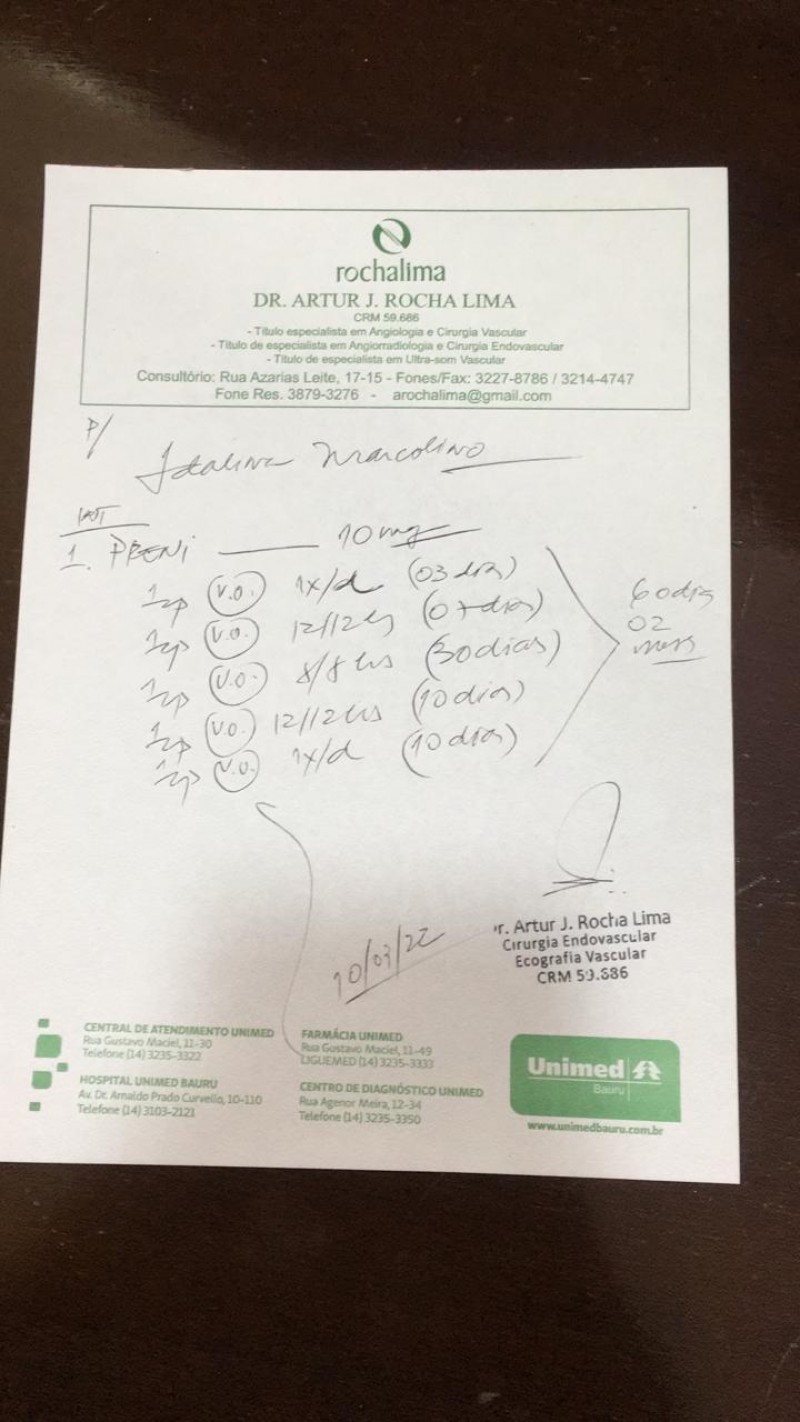 rochalima
DR. ARTUR J. ROCHA LIMA
CRM 59.686
- Título especialista em Angiologia e Cirurgia Vascular
- Título de especialista em Angiorradiologia e Cirurgia Endovascular
- Título de especialista em Ultra-som Vascular
Consultório: Rua Azarias Leite, 17-15 - Fones/Fax: 3227-8786 / 3214-4747
Fone Res. 3879-3276 - arochalima@gmail.com
P/
Idalina Marcolino
1. PRENI 10 mg
1cp V.O. 1x/d (03 dias)
1cp V.O. 12/12hs (07 dias)
1cp V.O. 8/8hs (30 dias)
1cp V.O. 12/12hs (10 dias)
1cp V.O. 1x/d (10 dias)
60 dias
02
meses
10/03/22
r. Artur J. Rocha Lima
Cirurgia Endovascular
Ecografia Vascular
CRM 59.686
CENTRAL DE ATENDIMENTO UNIMED
Rua Gustavo Maciel, 11-30
Telefone (14) 3235-3322
HOSPITAL UNIMED BAURU
Av. Dr. Arnaldo Prado Curvello, 10-110
Telefone (14) 3103-2121
FARMÁCIA UNIMED
Rua Gustavo Maciel, 11-49
LIGUEMED (14) 3235-3333
CENTRO DE DIAGNÓSTICO UNIMED
Rua Agenor Meira, 12-34
Telefone (14) 3235-3350
Unimed
Bauru
www.unimedbauru.com.br